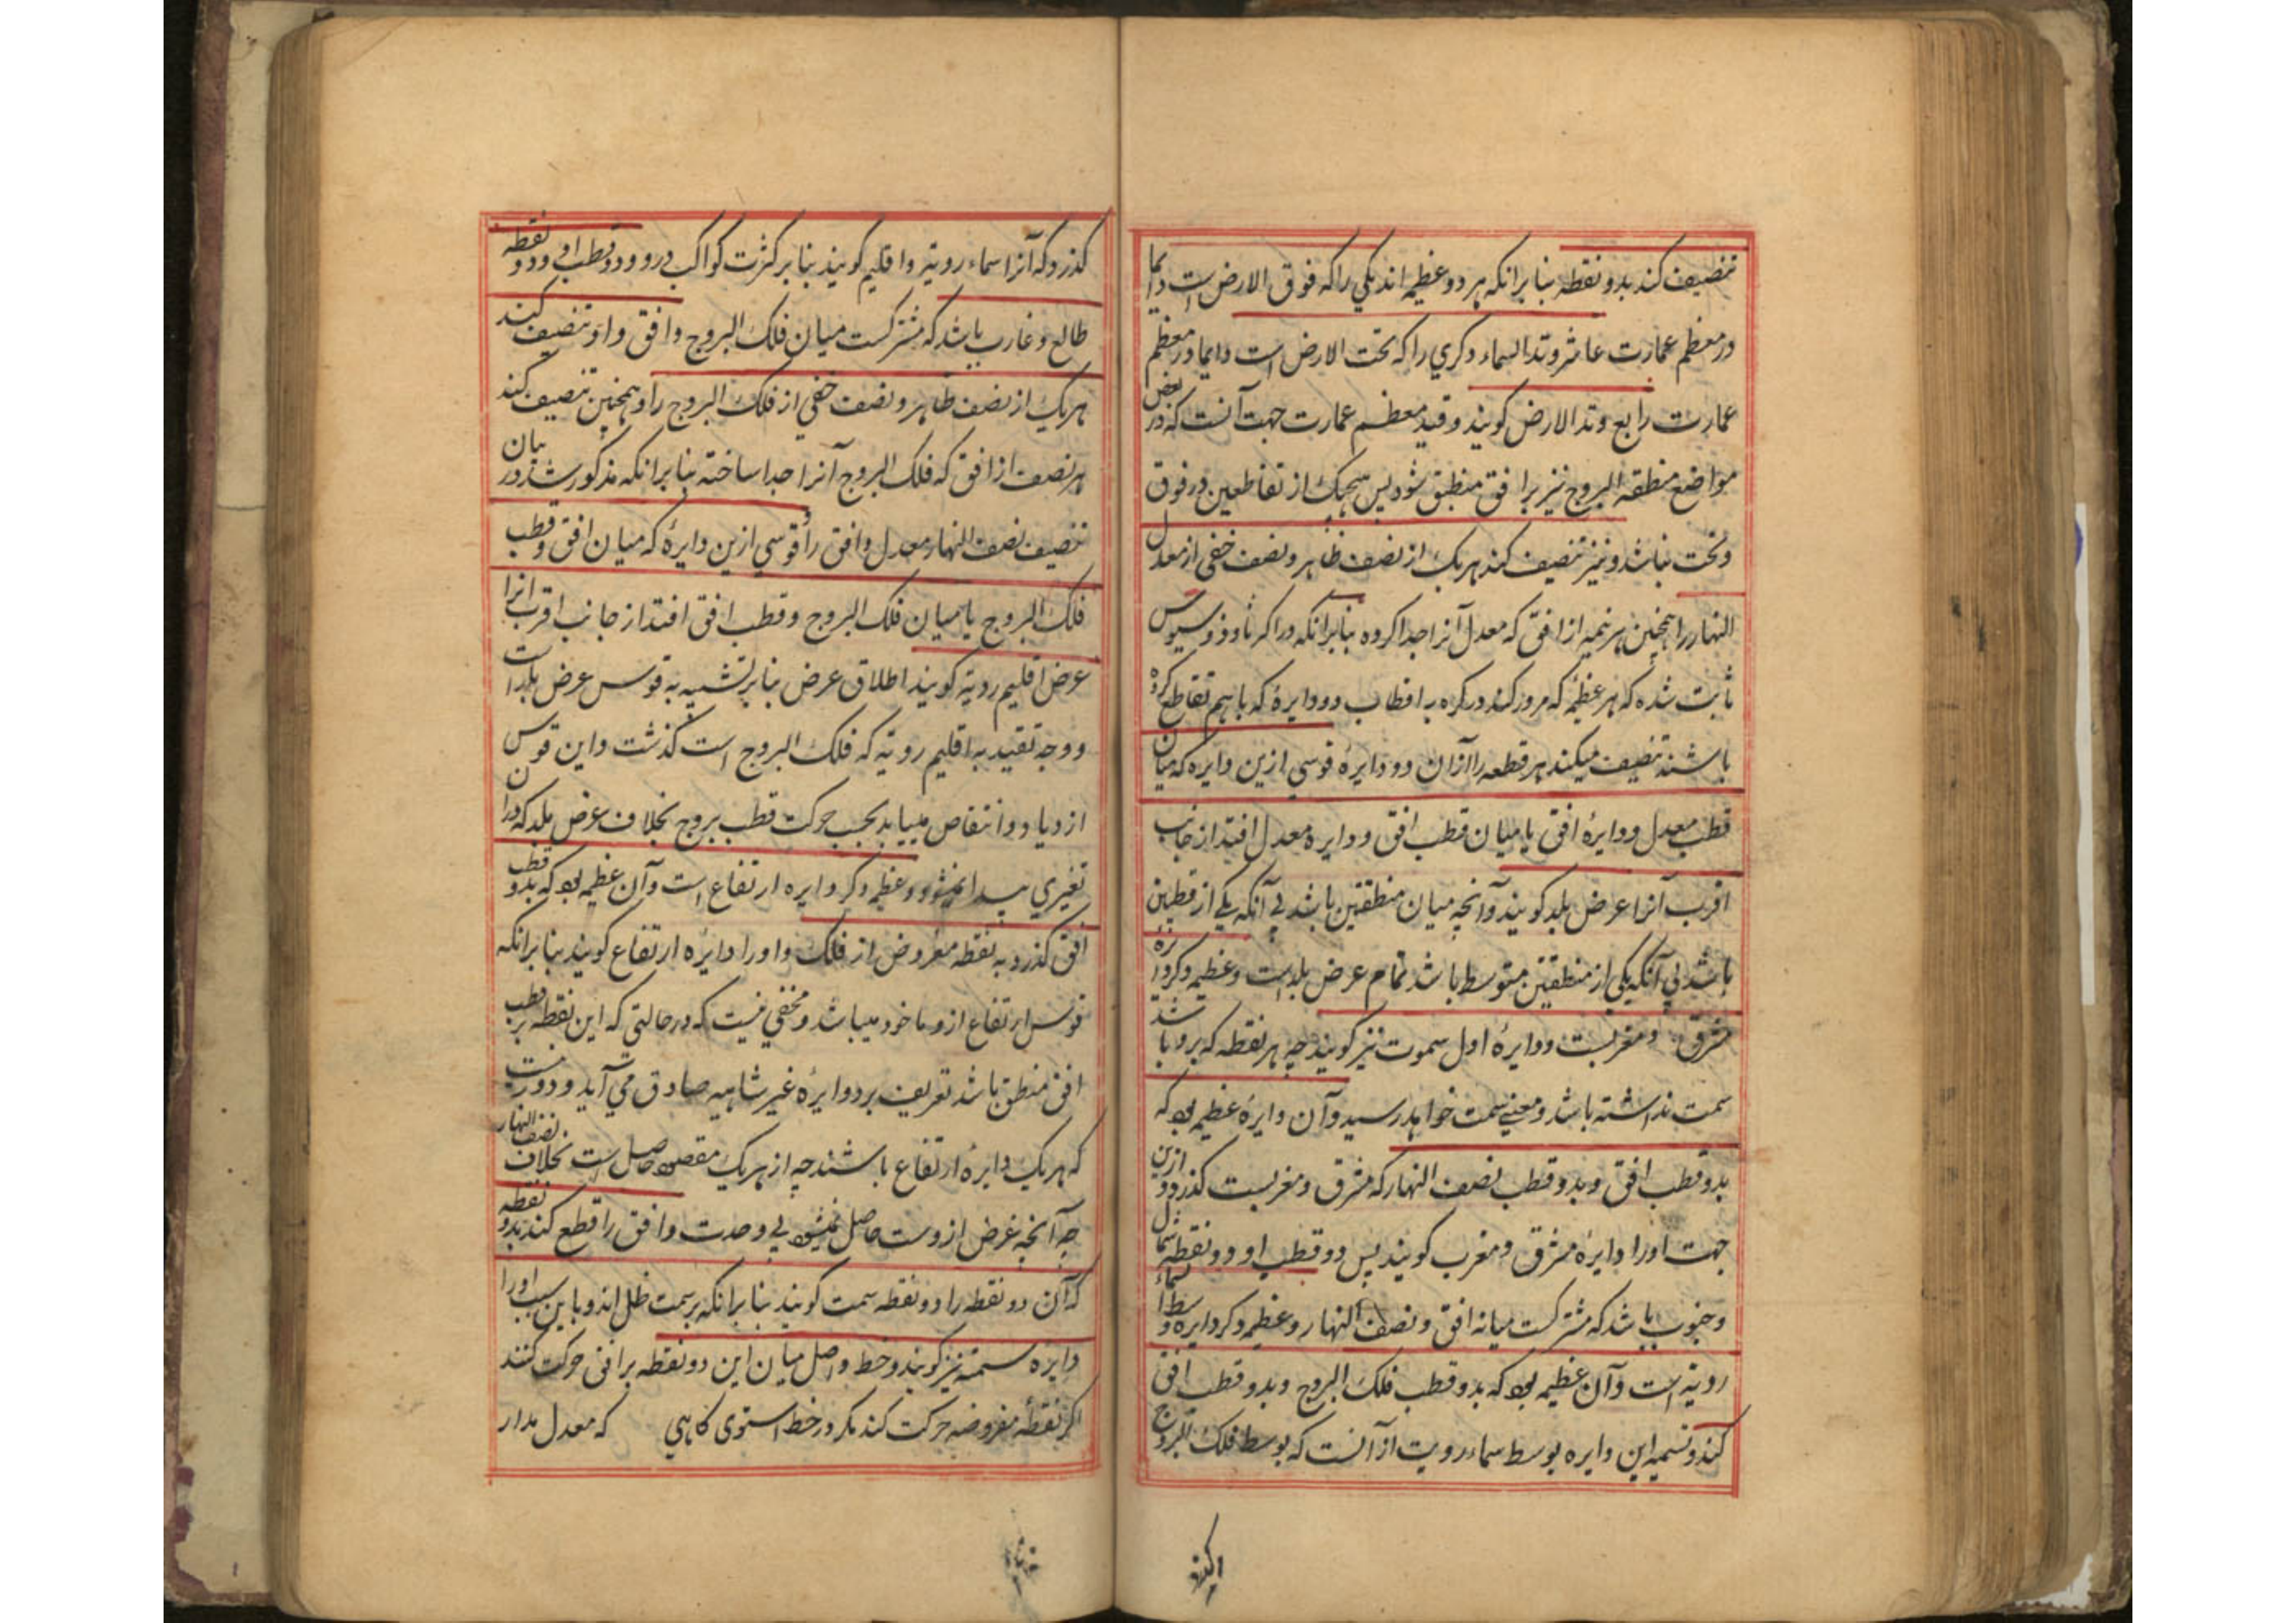 تنصیف کند بدو نقطه بنا برانکه هر دو عظیمه اند یکی را که فوق الارض است دایما
در معظم عمارت عاشر و وتد السماء و دکری را که تحت الارض است دایما در معظم
عمارت رابع و وتد الارض کویند و قید معظم عمارت جهت آنست که در بعض
مواضع منطقه البروج نیز بر افق منطبق شود پس هیچیک از تقاطعین در فوق
و تحت نباشد و نیز تنصیف کند هر یک از نصف ظاهر و نصف خفی از معدل
النهار را و همچنین هر نیمه از افق که معدل آنرا جدا کرده بنا برانکه در اکر ثاوذوسیوس
ثابت شده که هر عظیمه که مرور کند در کره به اقطاب دو دایرهٔ که با هم تقاطع کرده
باشند تنصیف میکند هر قطعه را از ان دو دایرهٔ قوسی ازین دایره که میان
قطب معدل و دایرهٔ افق یا میان قطب افق و دایره معدل افتد از جانب
اقرب آنرا عرض بلد کویند و آنچه میان منطقتین باشد بی آنکه یکی از قطبین
باشد بی آنکه یکی از منطقتین متوسط باشد تمام عرض بلد است و عظیمه دکر دایرهٔ
مشرق و مغربست و دایرهٔ اول سموت نیز کویند چه هر نقطه که برو باشد
سمت نداشته باشد و معنی سمت خواهد رسید و آن دایرهٔ عظیمه بود که
بدو قطب افق و بدو قطب نصف النهار که مشرق و مغربست کذرد و ازین
جهت اورا دایرهٔ مشرق و مغرب کویند پس دو قطب او دو نقطه شمال
و جنوب باشد که مشترکست میانه افق و نصف النهار و عظیمه دکر دایره وسط سماء
رویة است و آن عظیمه بود که بدو قطب فلک البروج و بدو قطب افق
کند و تسمیه این دایره بوسط سماء رویت از آنست که بوسط فلک البروج
کذرد که آنرا سماء رویة و اقلیم کویند بنا بر کثرت کواکب درو و دو قطب او دو نقطه
طالع و غارب باشد که مشترکست میان فلک البروج و افق و او تنصیف کند
هر یک از نصف ظاهر و نصف خفی از فلک البروج را و همچنین تنصیف کند
هر نصف از افق که فلک البروج آنرا جدا ساخته بنا برانکه مذکور شد در بیان
تنصیف نصف النهار معدل و افق را و قوسی ازین دایرهٔ که میان افق و قطب
فلک البروج یا میان فلک البروج و قطب افق افتد از جانب اقرب انرا
عرض اقلیم رویة کویند اطلاق عرض بنا بر تشبیه به قوس عرض بلد است
و وجه تقیید به اقلیم رویة که فلک البروج است کذشت و این قوس
ازدیاد و انتقاص مییابد بحسب حرکت قطب بروج بخلاف عرض بلد که دران
تغیری پیدا نمیشود و عظیمه دکر دایره ارتفاع است و آن عظیمه بود که بدو قطب
افق کذرد و به نقطه مفروض از فلک و اورا دایره ارتفاع کویند بنا برانکه
قوس ارتفاع ازو ماخوذ میباشد و مخفی نیست که در حالتی که این نقطه بر قطب
افق منطبق باشد تعریف بر دوایرهٔ غیر متناهیه صادق می آید و دور نیست
که هر یک دایرهٔ ارتفاع باشند چه از هر یک مقصود حاصل است بخلاف نصف النهار
چه آنچه غرض ازوست حاصل نمیشود بی وحدت و افق را قطع کند بدو نقطه
که آن دو نقطه را دو نقطه سمت کویند بنا برانکه بر سمت ظل اند و باین سبب اورا
دایره سمتیه نیز کویند و خط واصل میان این دو نقطه بر افق حرکت کنند
اکر نقطهٔ مفروضه حرکت کند مکر در خط استوی کاهی که معدل مدار